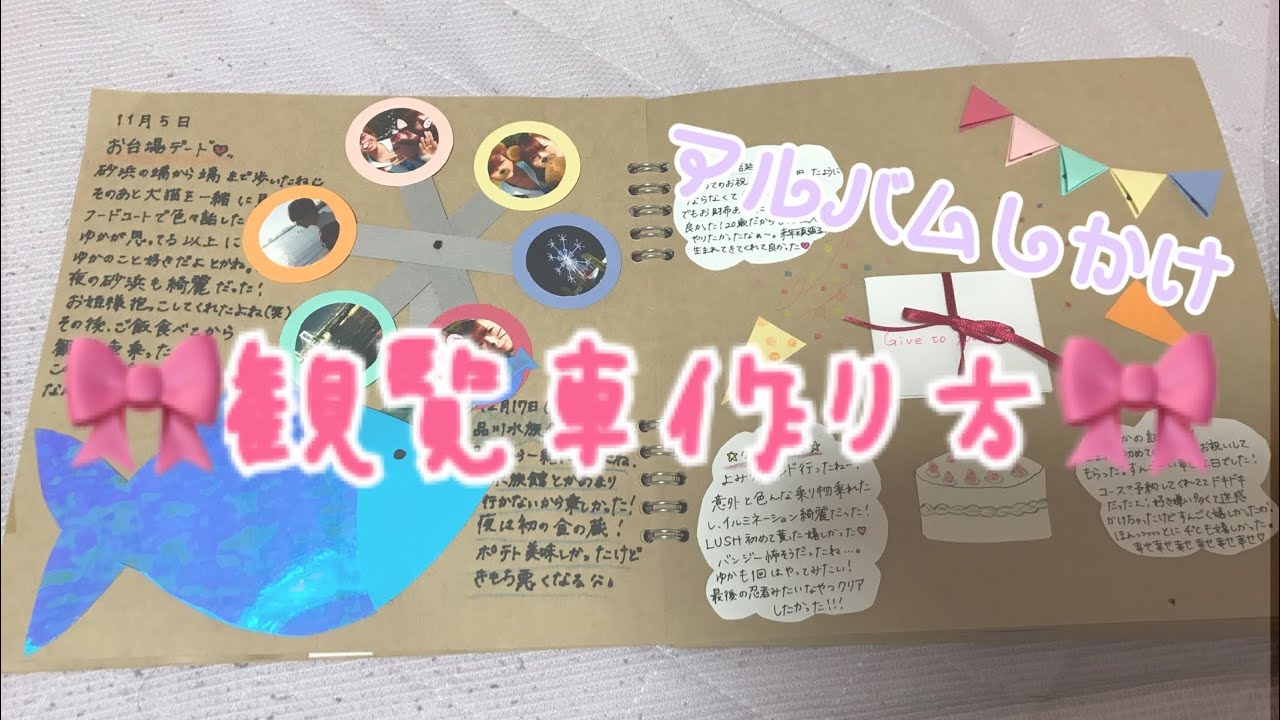 アルバムしかけ
観覧車作り方
11月5日
お台場デート
砂浜の端から端まで歩いたね
そのあと犬猫を一緒に見
フードコートで色々話した
ゆかが思ってる以上に
ゆかのこと好きだよとかね。
夜の砂浜も綺麗だった!
お姫様抱っこしてくれたよね(笑)
その後、ご飯食べてから
乗った
月17日
品川水族
水族館とかあまり
行かないから楽しかった!
夜は初の金の蔵!
ポテト美味しかったけど
きもち悪くなるな。
誕 日 たように
ってのお祝
ならなくて
でもお財布
良かった!20歳だから
やりたかったなぁ〜。来年頑張る
生まれてきてくれて良かった
Give to
よみ ンド行ったね〜!
意外と色んな乗り物乗れた
し、イルミネーション綺麗だった!
LUSH初めて貰った嬉しかった
バンジー怖そうだったね…。
ゆかも1回はやってみたい!
最後の忍者みたいなやつクリア
したかった!!!
かの お祝いして
もらった。 日でした!
コース予約してくれててドキドキ
だったよ!好き嫌い多くて迷惑
かけちゃったけどすんごく嬉しかったの。
ほんっっっっとにとても嬉しかった。
幸せ幸せ幸せ幸せ幸せ幸せ